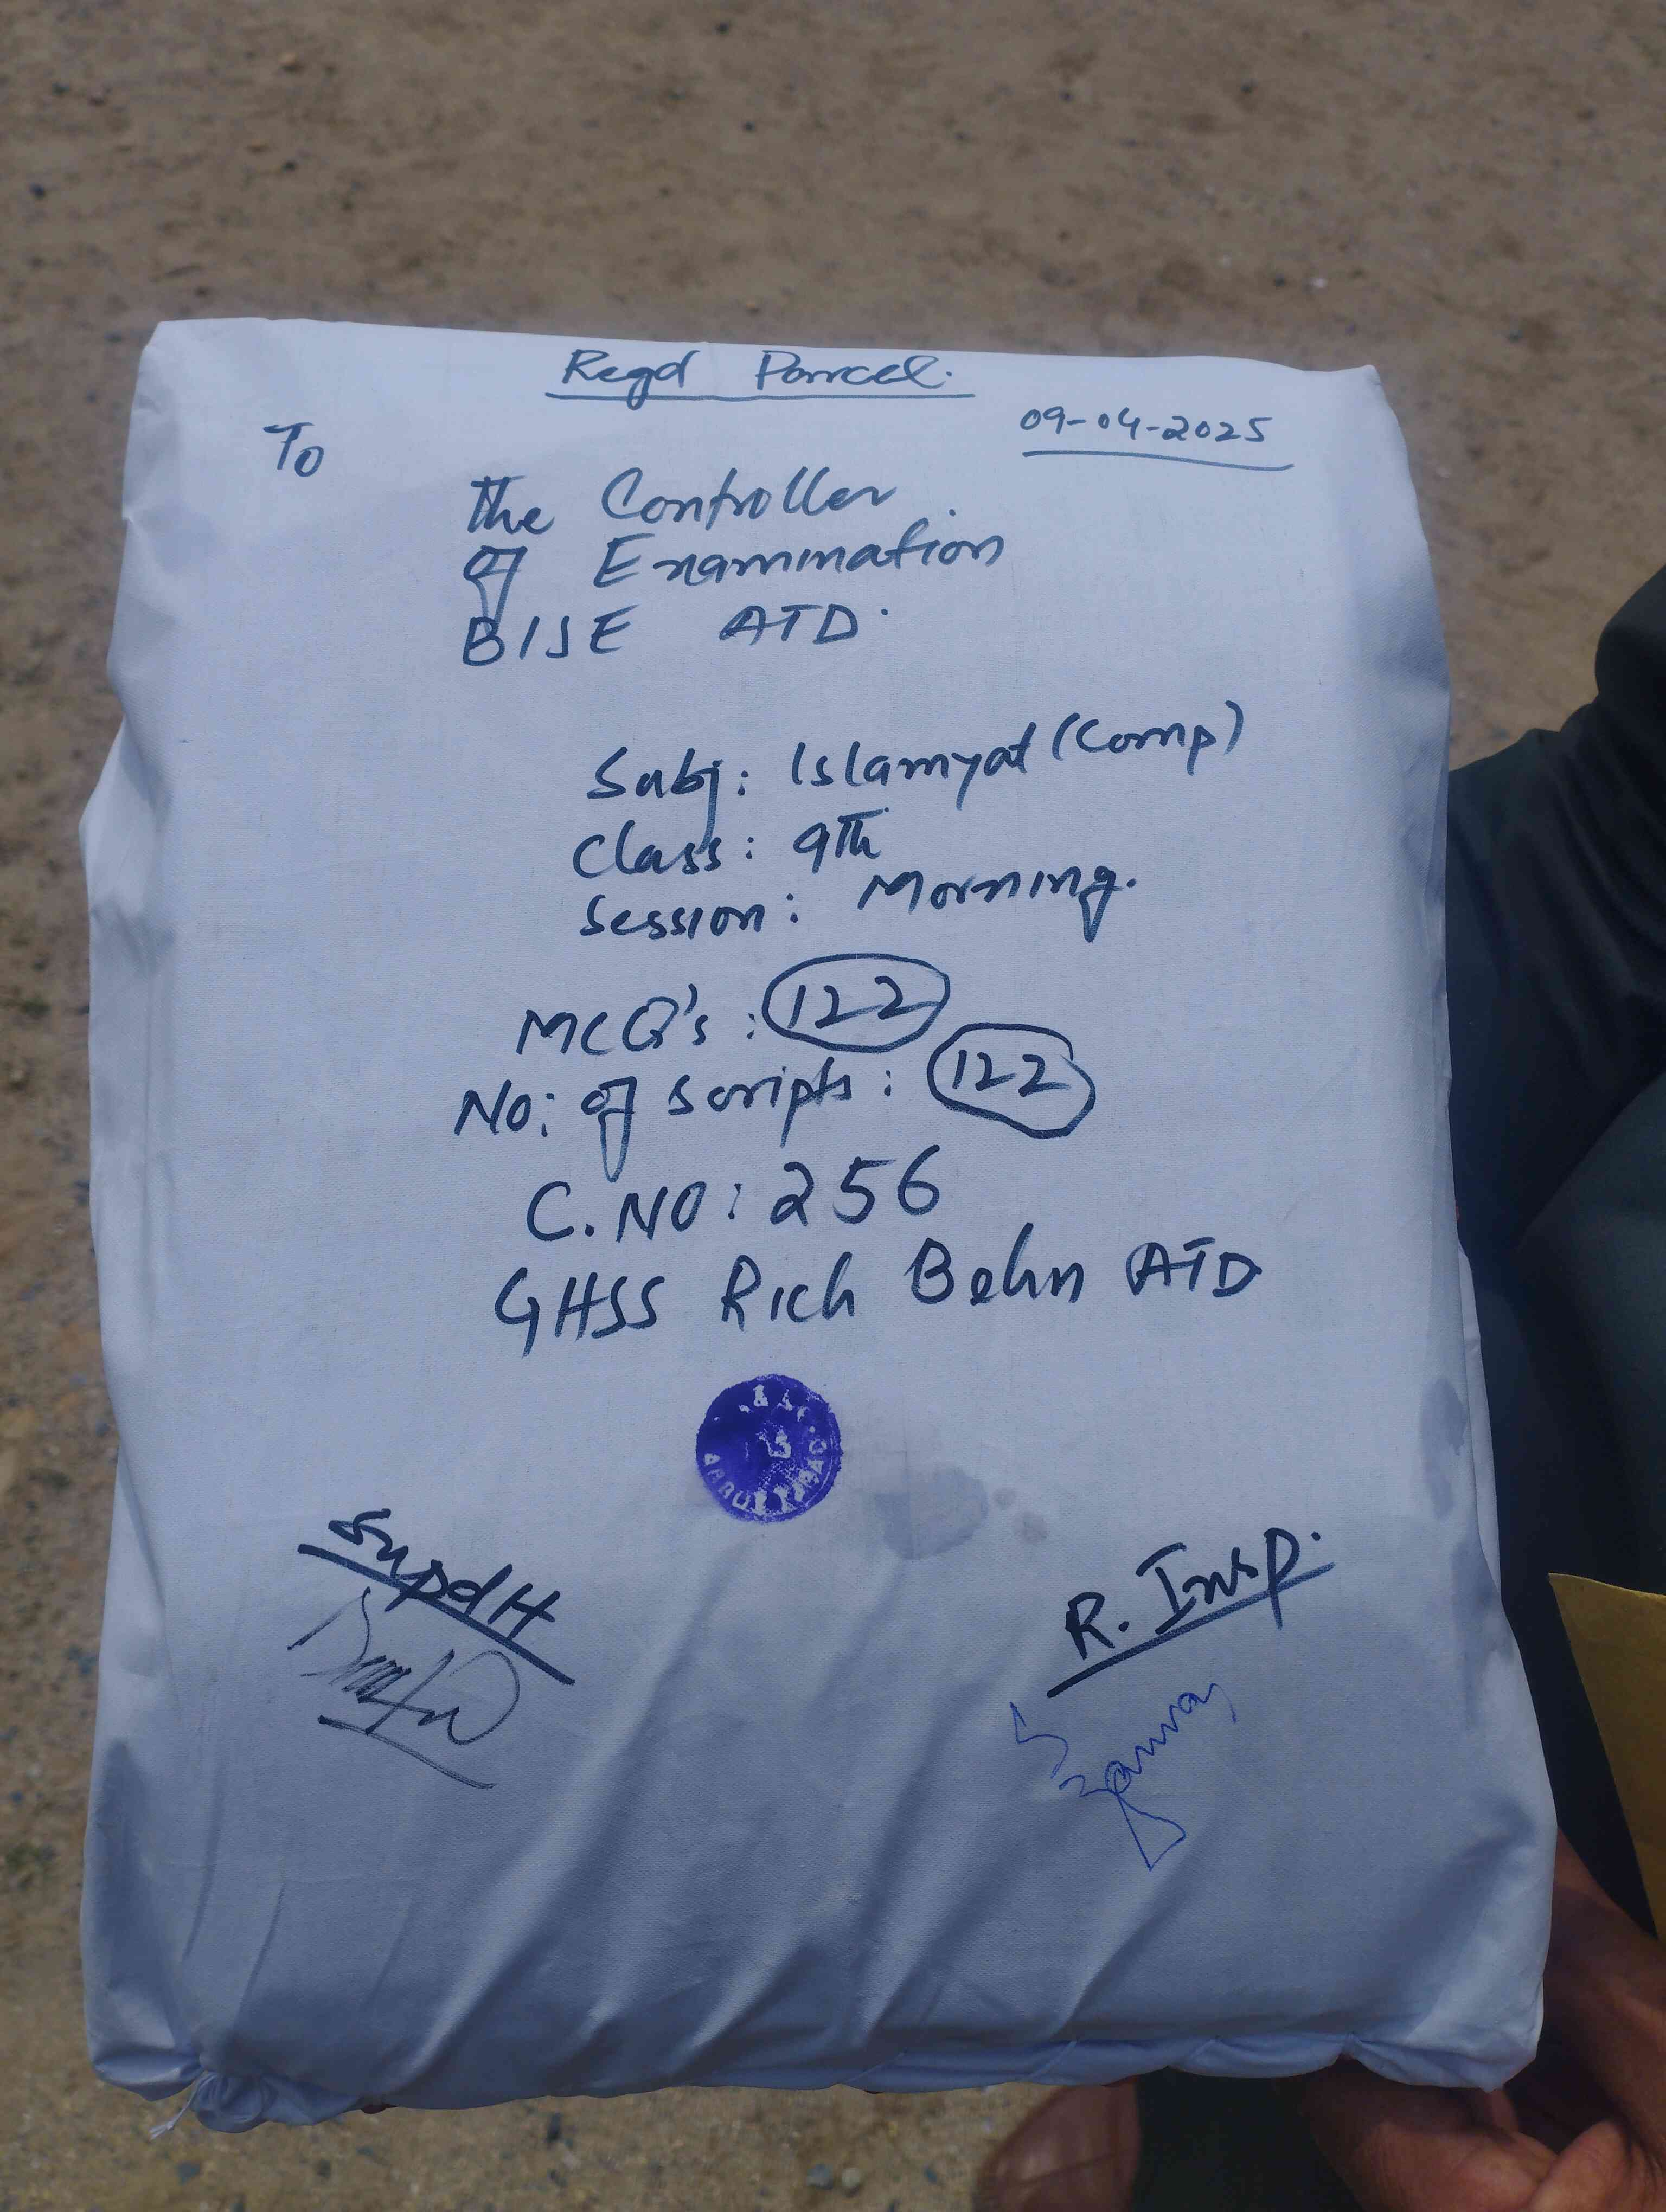 Regd Parcel.
09-04-2025
To
The Controller
of Exammination
BISE ATD.
Subj: Islamyat (Comp)
Class: 9th
Session: Morning.
MCQ's: 122
No: of scripts: 122
C.NO: 256
GHSS Rich Behn ATD
SupdH
R. Insp.